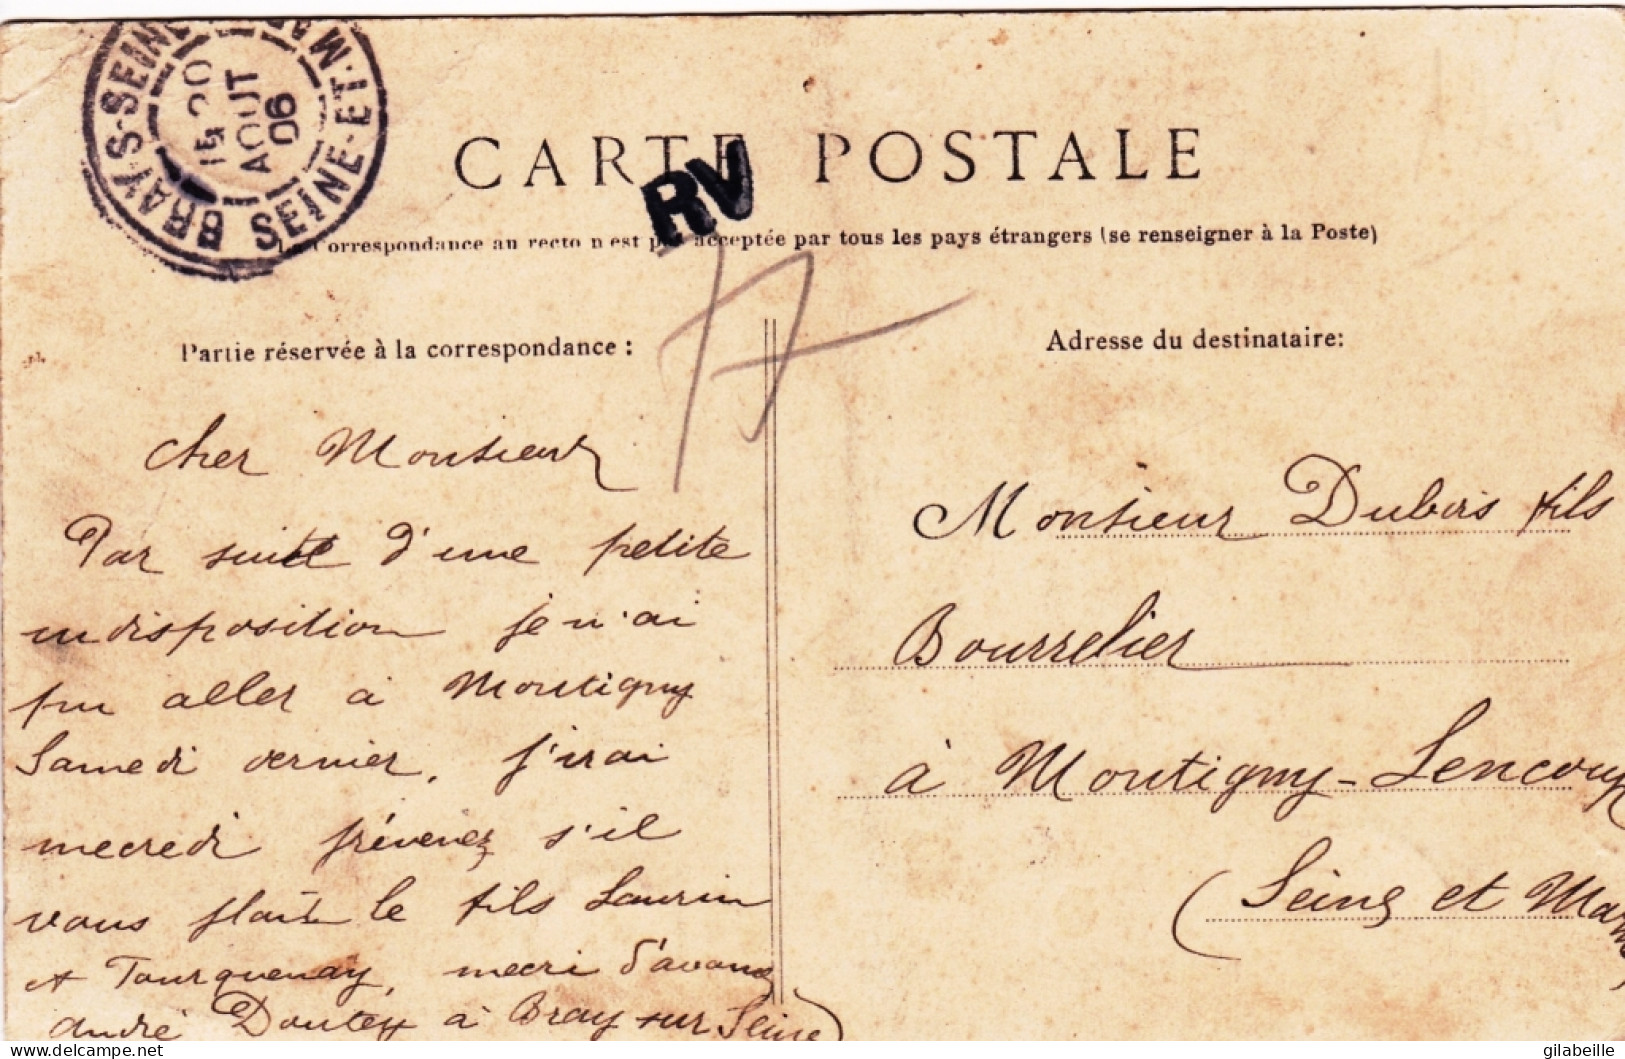 BRAY-S-SEINE SEINE-ET-M
15 20
AOUT
06
CARTE POSTALE
RV
La Correspondance au recto n'est pas acceptée par tous les pays étrangers (se renseigner à la Poste)
Partie réservée à la correspondance :
Adresse du destinataire:
Cher Monsieur
Par suite d'une petite
indisposition je n'ai
pu aller à Montigny
Samedi dernier, j'irai
mecredi prévenez s'il
vous plait le fils Laurin
et Tourquenay, merci d'avance
André à Bray sur Seine
Monsieur Dubois fils
Bourrelier
à Montigny-Lencoup
(Seine et Marne)
gilabeille